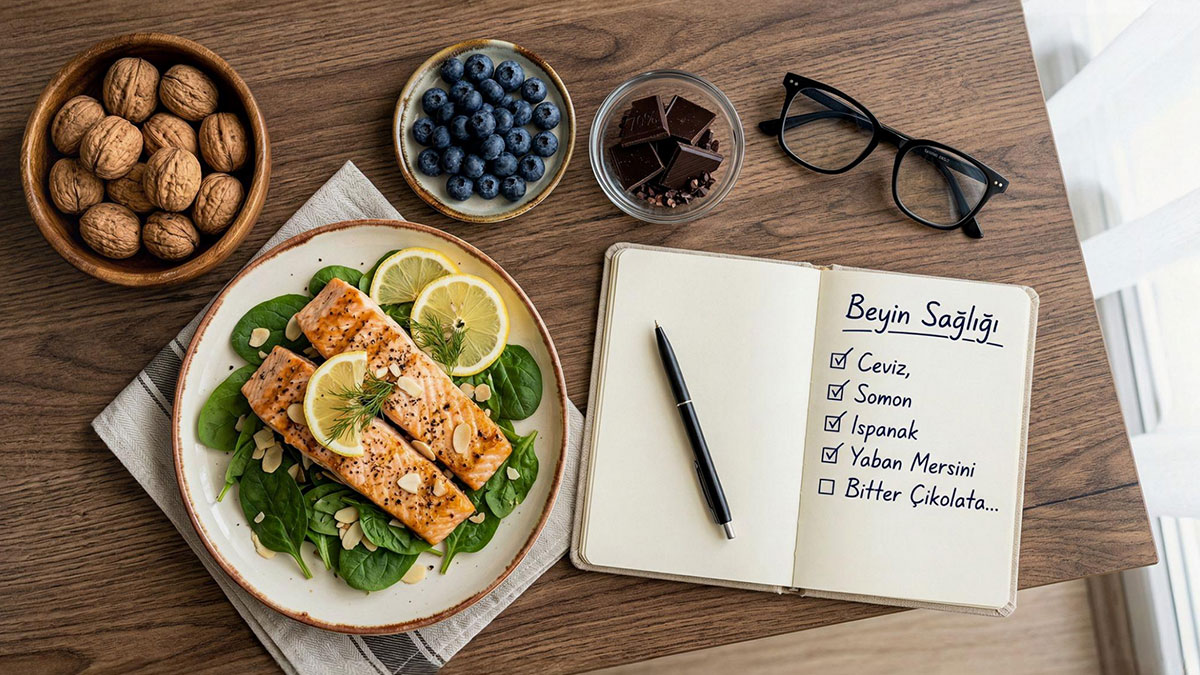 Beyin Sağlığı
Ceviz,
Somon
Ispanak
Yaban Mersini
Bitter Çikolata...